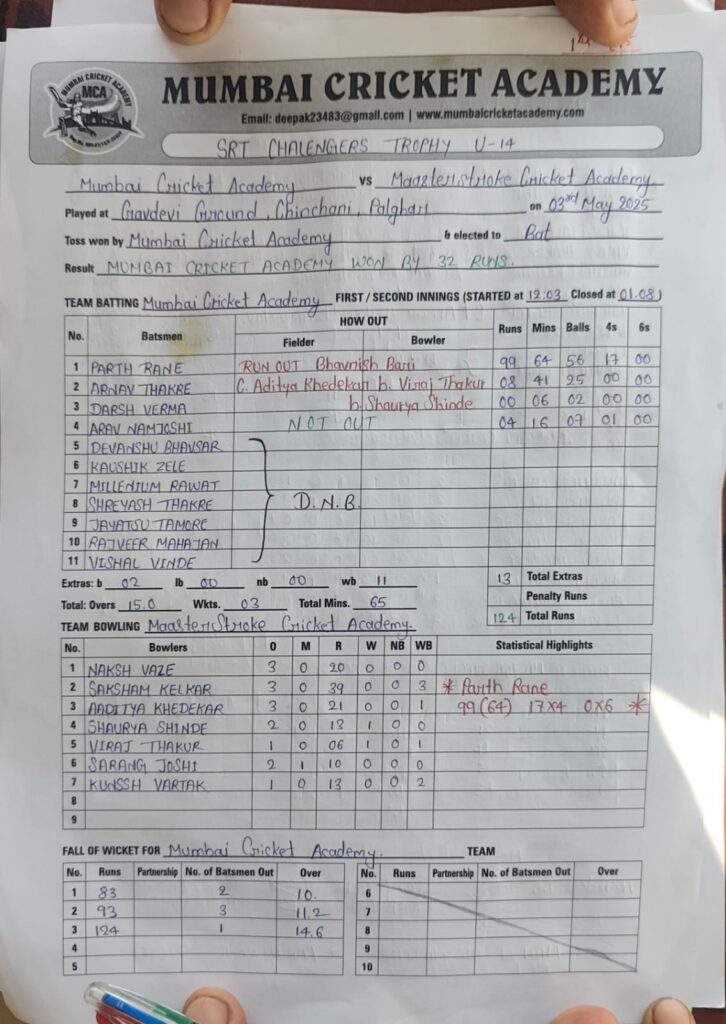 1st
MUMBAI CRICKET ACADEMY
MCA
MUMBAI CRICKET ACADEMY
Email: deepak23483@gmail.com | www.mumbaicricketacademy.com
SRT CHALENGERS TROPHY U-14
Mumbai Cricket Academy vs MaasteriStroke Cricket Academy
Played at Gavdevi Ground, Chinchani, Palghar on 03rd May 2025
Toss won by Mumbai Cricket Academy & elected to Bat
Result MUMBAI CRICKET ACADEMY WON BY 32 RUNS.
TEAM BATTING Mumbai Cricket Academy FIRST / SECOND INNINGS (STARTED at 12:03 Closed at 01.08)
No. Batsmen HOW OUT Runs Mins Balls 4s 6s
Fielder Bowler
1 PARTH RANE RUN OUT Bhavnish Bari 99 64 56 17 00
2 ARNAV THAKRE C. Aditya Khedekar b. Viraj Thakur 08 41 25 00 00
3 DARSH VERMA b. Shaurya Shinde 00 06 02 00 00
4 ARAV NAMJOSHI NOT OUT 04 16 07 01 00
5 DEVANSHU BHAVSAR
6 KAUSHIK ZELE
7 MILLENIUM RAWAT
8 SHREYASH THAKRE D.N.B.
9 JAYATSU TAMORE
10 RAJVEER MAHAJAN
11 VISHAL VINDE
Extras: b 02 lb 00 nb 00 wb 11 13 Total Extras
Penalty Runs
Total: Overs 15.0 Wkts. 03 Total Mins. 65 124 Total Runs
TEAM BOWLING MaasteriStroke Cricket Academy.
No. Bowlers O M R W NB WB Statistical Highlights
1 NAKSH VAZE 3 0 20 0 0 0
2 SAKSHAM KELKAR 3 0 39 0 0 3 * Parth Rane
3 AADITYA KHEDEKAR 3 0 21 0 0 1 99 (64) 17x4 0x6 *
4 SHAURYA SHINDE 2 0 13 1 0 0
5 VIRAJ THAKUR 1 0 06 1 0 1
6 SARANG JOSHI 2 1 10 0 0 0
7 KUNSSH VARTAK 1 0 13 0 0 2
8
9
FALL OF WICKET FOR Mumbai Cricket Academy. TEAM
No. Runs Partnership No. of Batsmen Out Over No. Runs Partnership No. of Batsmen Out Over
1 83 2 10. 6
2 93 3 11.2 7
3 124 1 14.6 8
4 9
5 10